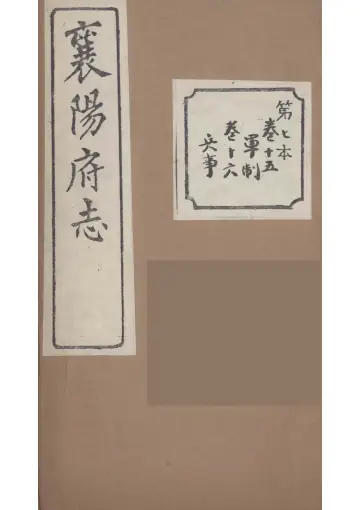 襄陽府志
第七本
卷十五
軍制
卷十六
兵事